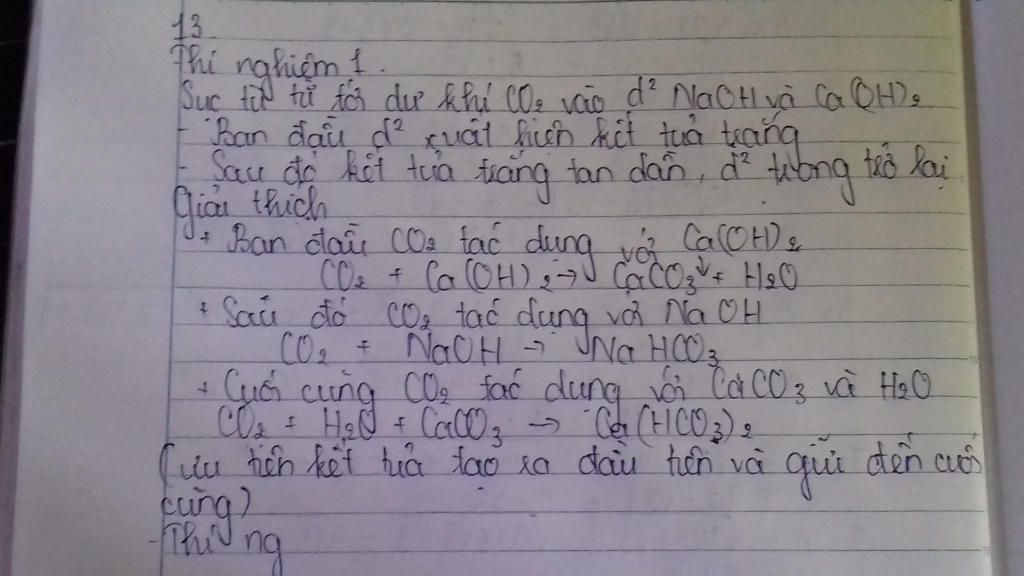 13.
Thí nghiệm 1.
Sục từ từ tới dư khí CO₂ vào d² NaOH và Ca(OH)₂
- Ban đầu d² xuất hiện kết tủa trắng
- Sau đó kết tủa trắng tan dần, d² trong trở lại
Giải thích
+ Ban đầu CO₂ tác dụng với Ca(OH)₂
CO₂ + Ca(OH)₂ → CaCO₃↓ + H₂O
+ Sau đó CO₂ tác dụng với NaOH
CO₂ + NaOH → NaHCO₃
+ Cuối cùng CO₂ tác dụng với CaCO₃ và H₂O
CO₂ + H₂O + CaCO₃ → Ca(HCO₃)₂
(ưu tiên kết tủa tạo ra đầu tiên và giữ đến cuối
cùng)
- Thí ng